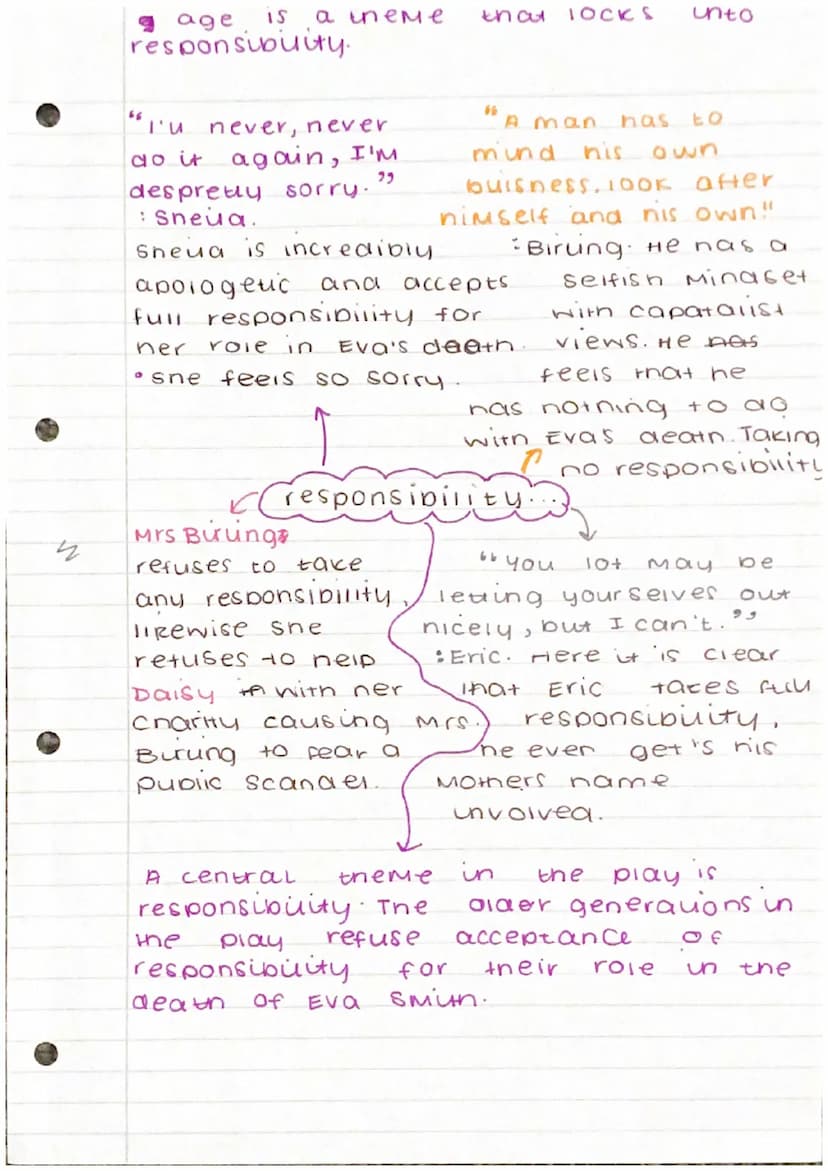 age is a theme that locks into
responsibility.
"I'll never, never
do it again, I'm
despretly sorry."
: Sheila.
Sheila is incredibly
apologetic and accepts
full responsibility for
her role in Eva's death.
• she feels so sorry.
"A man has to
mind his own
buisness, look after
himself and his own!"
: Birling. He has a
selfish mindset
with capatalist
views. He has
feels that he
has nothing to do
with Evas death. Taking
no responsibility
responsibility...
Mrs Birling
refuses to take
any responsibility,
likewise she
refuses to help
Daisy with her
charity causing Mrs.
Birling to fear a
public scandel.
"You lot may be
letting yourselves out
nicely, but I can't."
: Eric. Here it is clear
that Eric takes full
responsibility,
he ever get's his
mothers name
involved.
A central theme in the play is
responsibility. The older generations in
the play refuse acceptance of
responsibility for their role in the
death of Eva Smith.